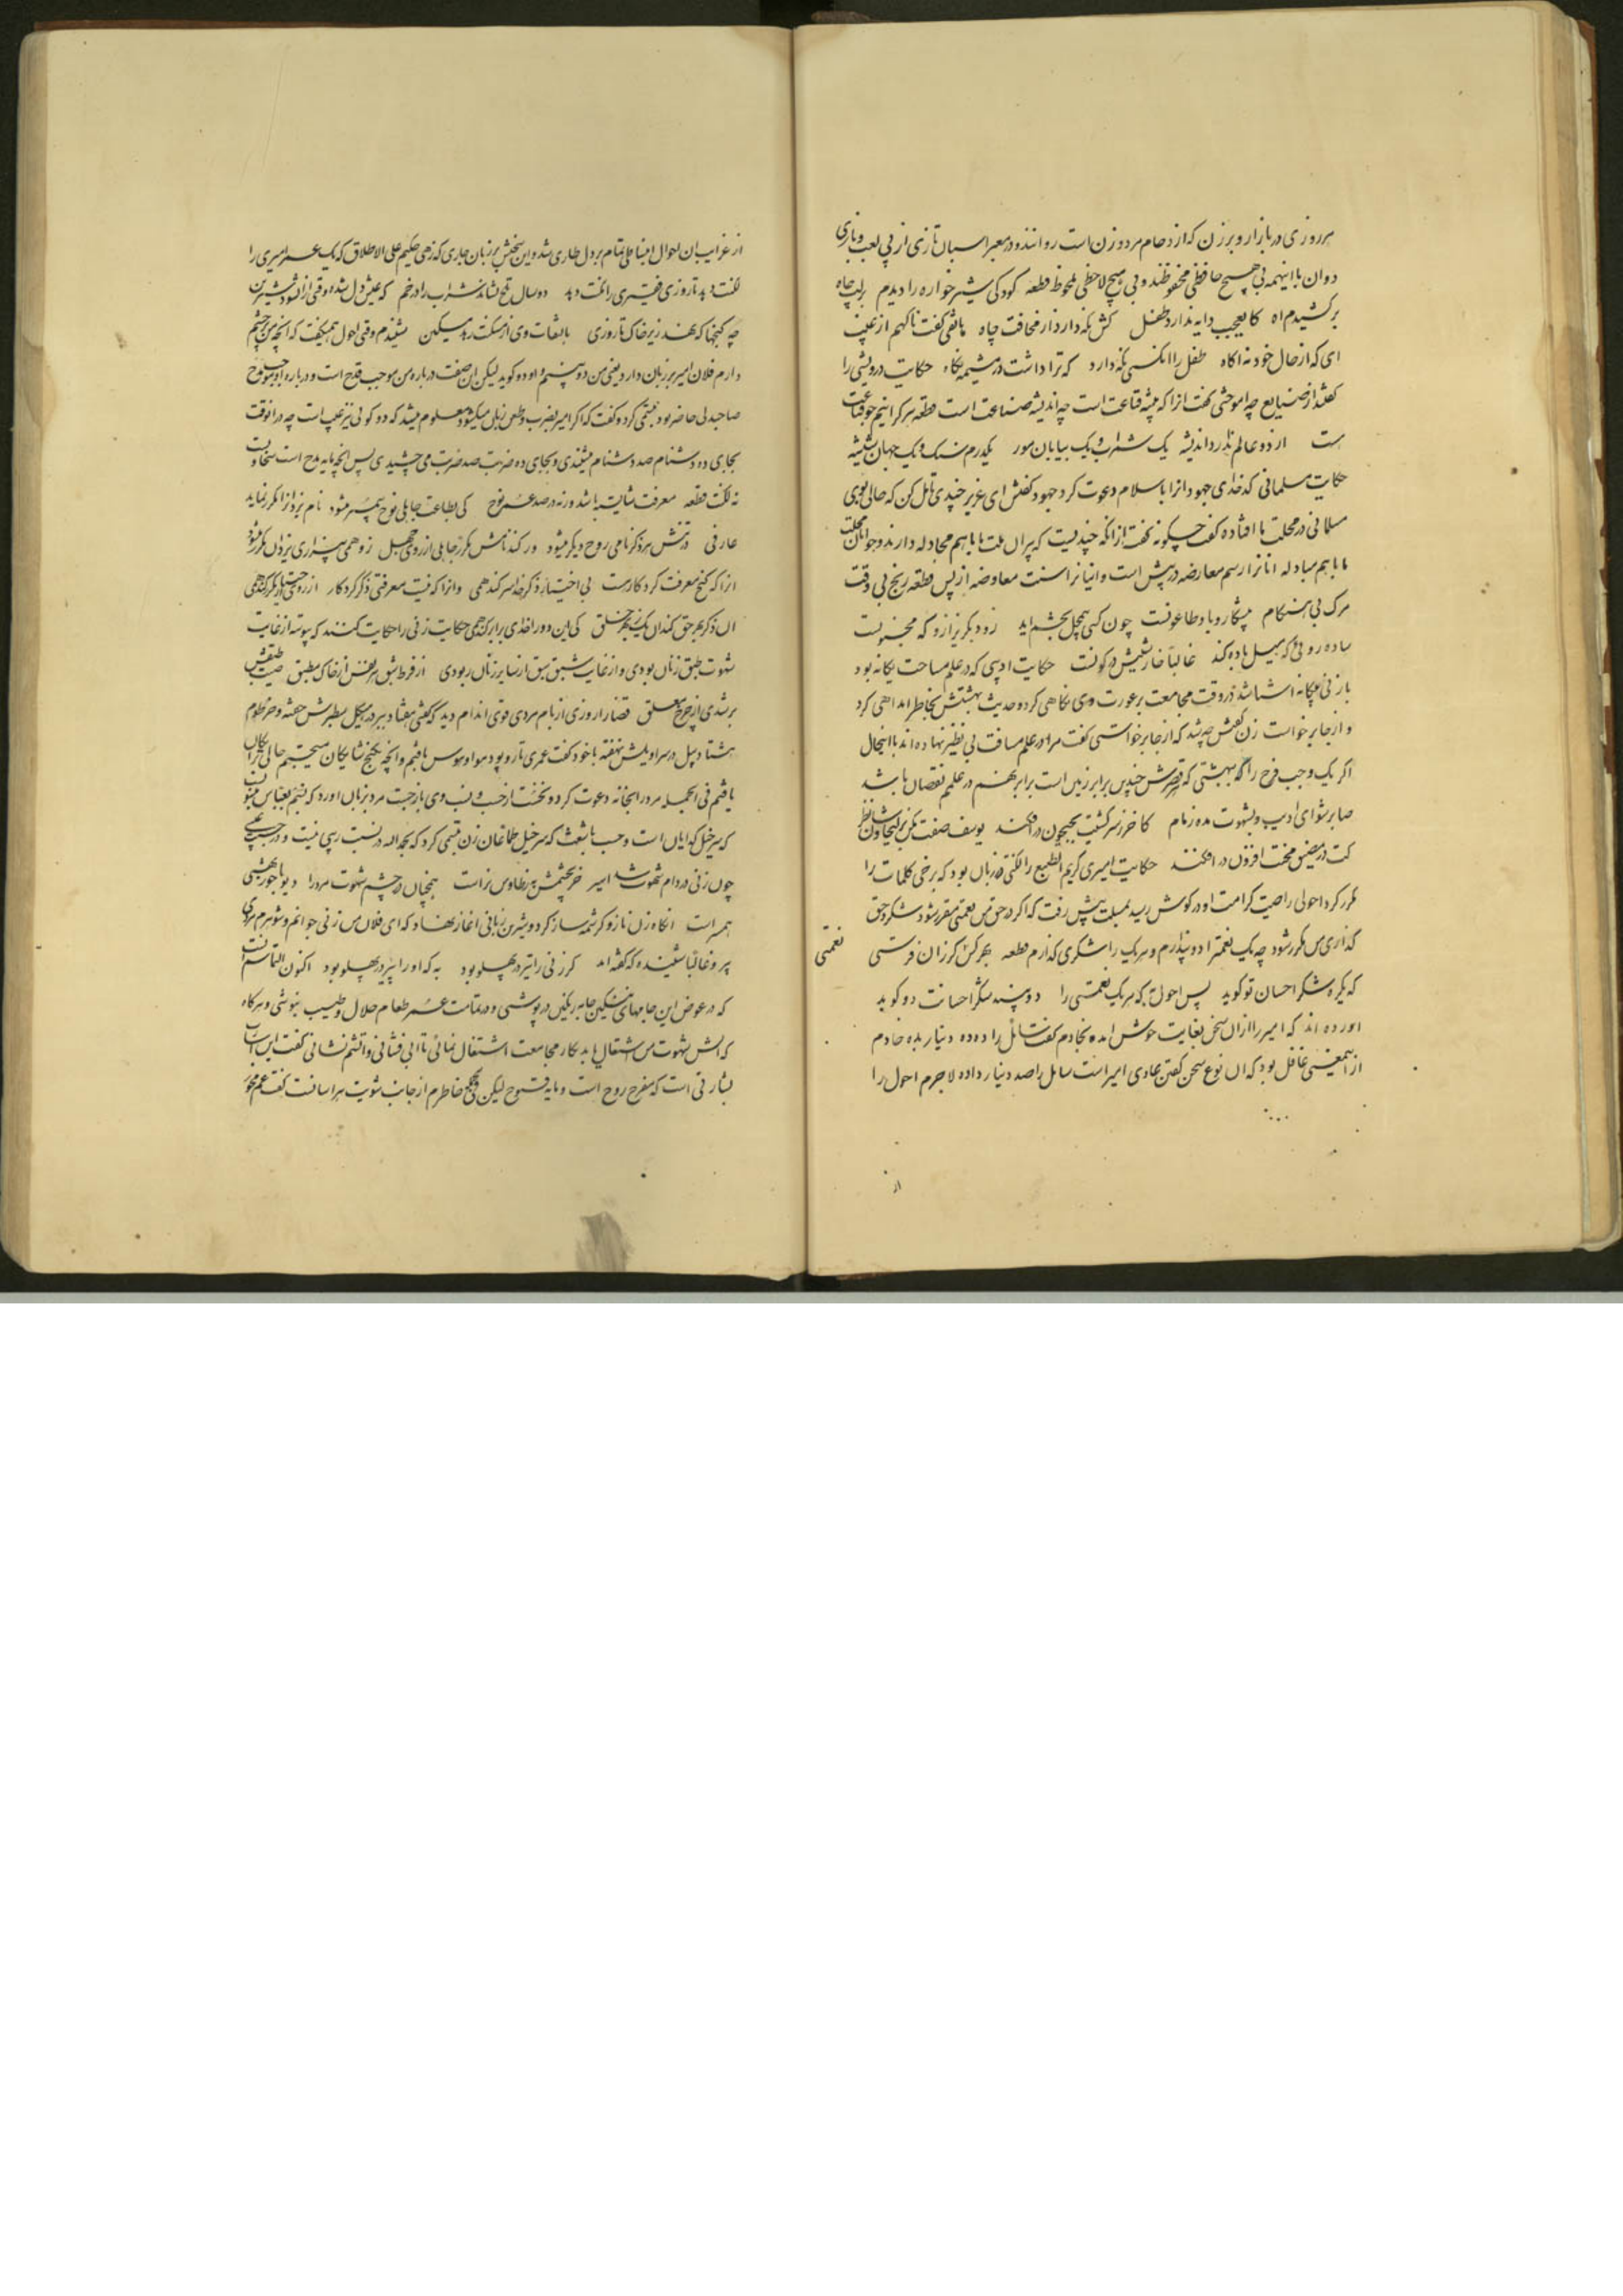 هر روزی در بازار و برزن که ازدحام مرد و زن است روانند و در معبر اسبان تازی از پی لعب و بازی
دوان با اینهمه بی هیچ حافظی محفوظند و بی هیچ لاحظی ملحوظ قطعه کودکی شیر خواره را دیدم بر لب چاه
برکشیدم آه کایعجب دایه ندارد طفل کش نکه دارد از مخافت چاه هاتفی گفت ناگهم از غیب
ای که از حال خود نه اگاه طفل را انکسی نکه دارد که ترا داشت در مشیمه نگاه حکایت درویشی را
گفتند از صنایع چه اموختی گفت ازا که پیشه قناعت است چه اندیشه صناعت است قطعه هر کرا نیم جو قناعت
هست از دو عالم ندارد اندیشه یک شراب و یک بیابان مور یکدرم سنک و یک جهان شیشه
حکایت مسلمانی کدخدای جهودانرا باسلام دعوت کرد جهود گفتش ای عزیز چندی تامل کن که حالی
مسلمانی در محلت ما افتاده گفت چگونه گفت ازانکه چندیست که پیران ملت ما باهم مجادله دارند و جوانان محلت
ما باهم مبادله انانرا رسم معارضه در پیش است و اینانرا سنت معاوضه از پس قطعه رنج بی وقت
مرک بی هنکام پیشکار وبا و طاعونست چون کسی بجشم اید زو دیگر بریز ازو که مجنونست
ساده روئی که میل باده کند غالبا خارشیش در کونست حکایت ادیبی که در علم مساحت یکانه بود
با زنی بیکانه اشنا شد در وقت مجامعت بر عورت وی نکاهی کرد و حدیث بهشتش بخاطر امد اهی کرد
و از جا برخواست زن گفتش چه شد که از جا برخواستی گفت مرا در علم مسافت بی نظیر نهاده اند با اینحال
اکر یک وجب فرج را که بهشتی که عرضش چندین برابر زمین است برابر نهم در علمم نقصان باشد
صابر شو ای ادیب و بشهوت مده زمام کاخر ز سر کشیت بجیحون در افکند یوسف صفت مکن بزلیخا وشان نظر
کت در مضیق محنت افزون در افکند حکایت امیری کریم الطبع را لکنتی در زبان بود که برخی کلمات را
مکرر کرد احولی را صیت کرامت او در کوش رسید بمسئلت پیش رفت که اکر در حق من نعمتی مقرر شود شکر حق
گذاری من مکرر شود چه یک نعمترا دو پندارم و هر یک را شکری گذارم قطعه بهر کس کرزان فرستی نعمتی
که یکره شکر احسان تو گوید پس احول به که هر یک نعمتی را دو بیند شکر احسانت دو گوید
اورده اند که امیر را از ان سخن بغایت خوش امد و بخادم گفت سائل را ده ده دینار بده خادم
ازینمعنی غافل بود که ان نوع سخن گفتن عادی امیر است سایل را صد دینار داده لاجرم احول را
از
از غرایب ان احوال انبساطی تمام بر دل طاری شد و این سخنش بر زبان جاری که زهی حکیم علی الاطلاق که یک عمر امیری را
لکنت دهد تا روزی فقیری را نعمت دهد دو سال تلخ نشاند شراب را در خم که عیش دل شده وقتی از ان شود شیرین
چه کنجها که نهد زیر خاک تا روزی بالتفات وی از مسکنت رهد مسکین شنیدم وقتی احول همیگفت که انچه من در چشم
دارم فلان امیر بر زبان دارد یعنی من دو بینم و او دو گوید لیکن این صفت درباره من موجب قدح است و درباره او موجب مدح
صاحبدلی حاضر بود تبسمی کرد و گفت که اکر امیر بضرب و طعن زبان میکشود معلوم میشد که دو کوئی نیز عیب است چه در انوقت
بجای ده دشنام صد دشنام میشنیدی و بجای ده ضربت صد ضربت می چشیدی پس انچه مایه مدح است سخاوتست
نه لکنت قطعه معرفت شایسته باشد ورنه در صد عمر نوح کی بطاعت جاهلی نوح پیمبر میشود نام یزدانرا مکرر نماید
عارفی در تنش هر ذکر نامی روح دیکر میشود ور کند نامش مکرر جاهلی از روی جهل زو همی بیزاری یزدان مکرر میشود
انرا که گنج معرفت کردکار هست بی اختیار ذکر خدا سر کند همی وانرا که نیست معرفتی ذکر کردکار از روی اختیار مکرر کند همی
ان ذکر بهر حق کند ان یک ز بهر خلق کی این دو را خدای برابر کند همی حکایت زنی را حکایت کنند که پیوسته از غایت
شهوت طبق زنان بودی و از غایت شبق سبق از سایر زنان ربودی از فرط شبق هر نفس از خاک مطبق صیت طبقش
برشدی از چرخ معلق قضا را روزی از بام مردی قوی اندام دید که گفتی هفتاد ببر در هیکل سطبرش خفته و خرطوم
هشتاد پیل در سراویلش نهفته با خود گفت عمری تار و پود هوا و هوس بافتم و انچه بکنج شایکان میجستم حالی رایکان
یافتم فی الجمله مرد را بخانه دعوت کرد و نخست از حسب و نسب وی باز جست مرد بزبان اورد که نسبم بعباس میشود
که سرخیل گدایان است و حسب باشعث که سرخیل طماعان زن تبسمی کرد که بحمد الله در نسبت ریبی نیست و در حسب عیبی
چون زنی در دام شهوت شد اسیر خر بچشمش به ز طاوس نر است همچنان در چشم شهوت مرد را دیو با حور بهشتی
همسر است انکاه زن ناز و کرشمه ساز کرد و بشیرین زبانی اغاز نهاد که ای فلان من زنی جوانم و شوهرم مردی
پیر و غالبا شنیده که گفته اند کر زنی را تیر در پهلو بود به که او را پیر در پهلو بود اکنون التماسم انست
که در عوض این جامهای ننگین جامه رنگین در پوشی و در تمامت عمر طعام حلال و طیب بنوشی و هرگاه
که اتش شهوت من اشتعال یابد بکار مجامعت اشتغال نمائی تا ابی فشانی و اتشم نشانی گفت این
بشارتی است که مفرح روح است و مایه فتوح لیکن خاطرم از جانب شویت هراسانست گفت غم مخور